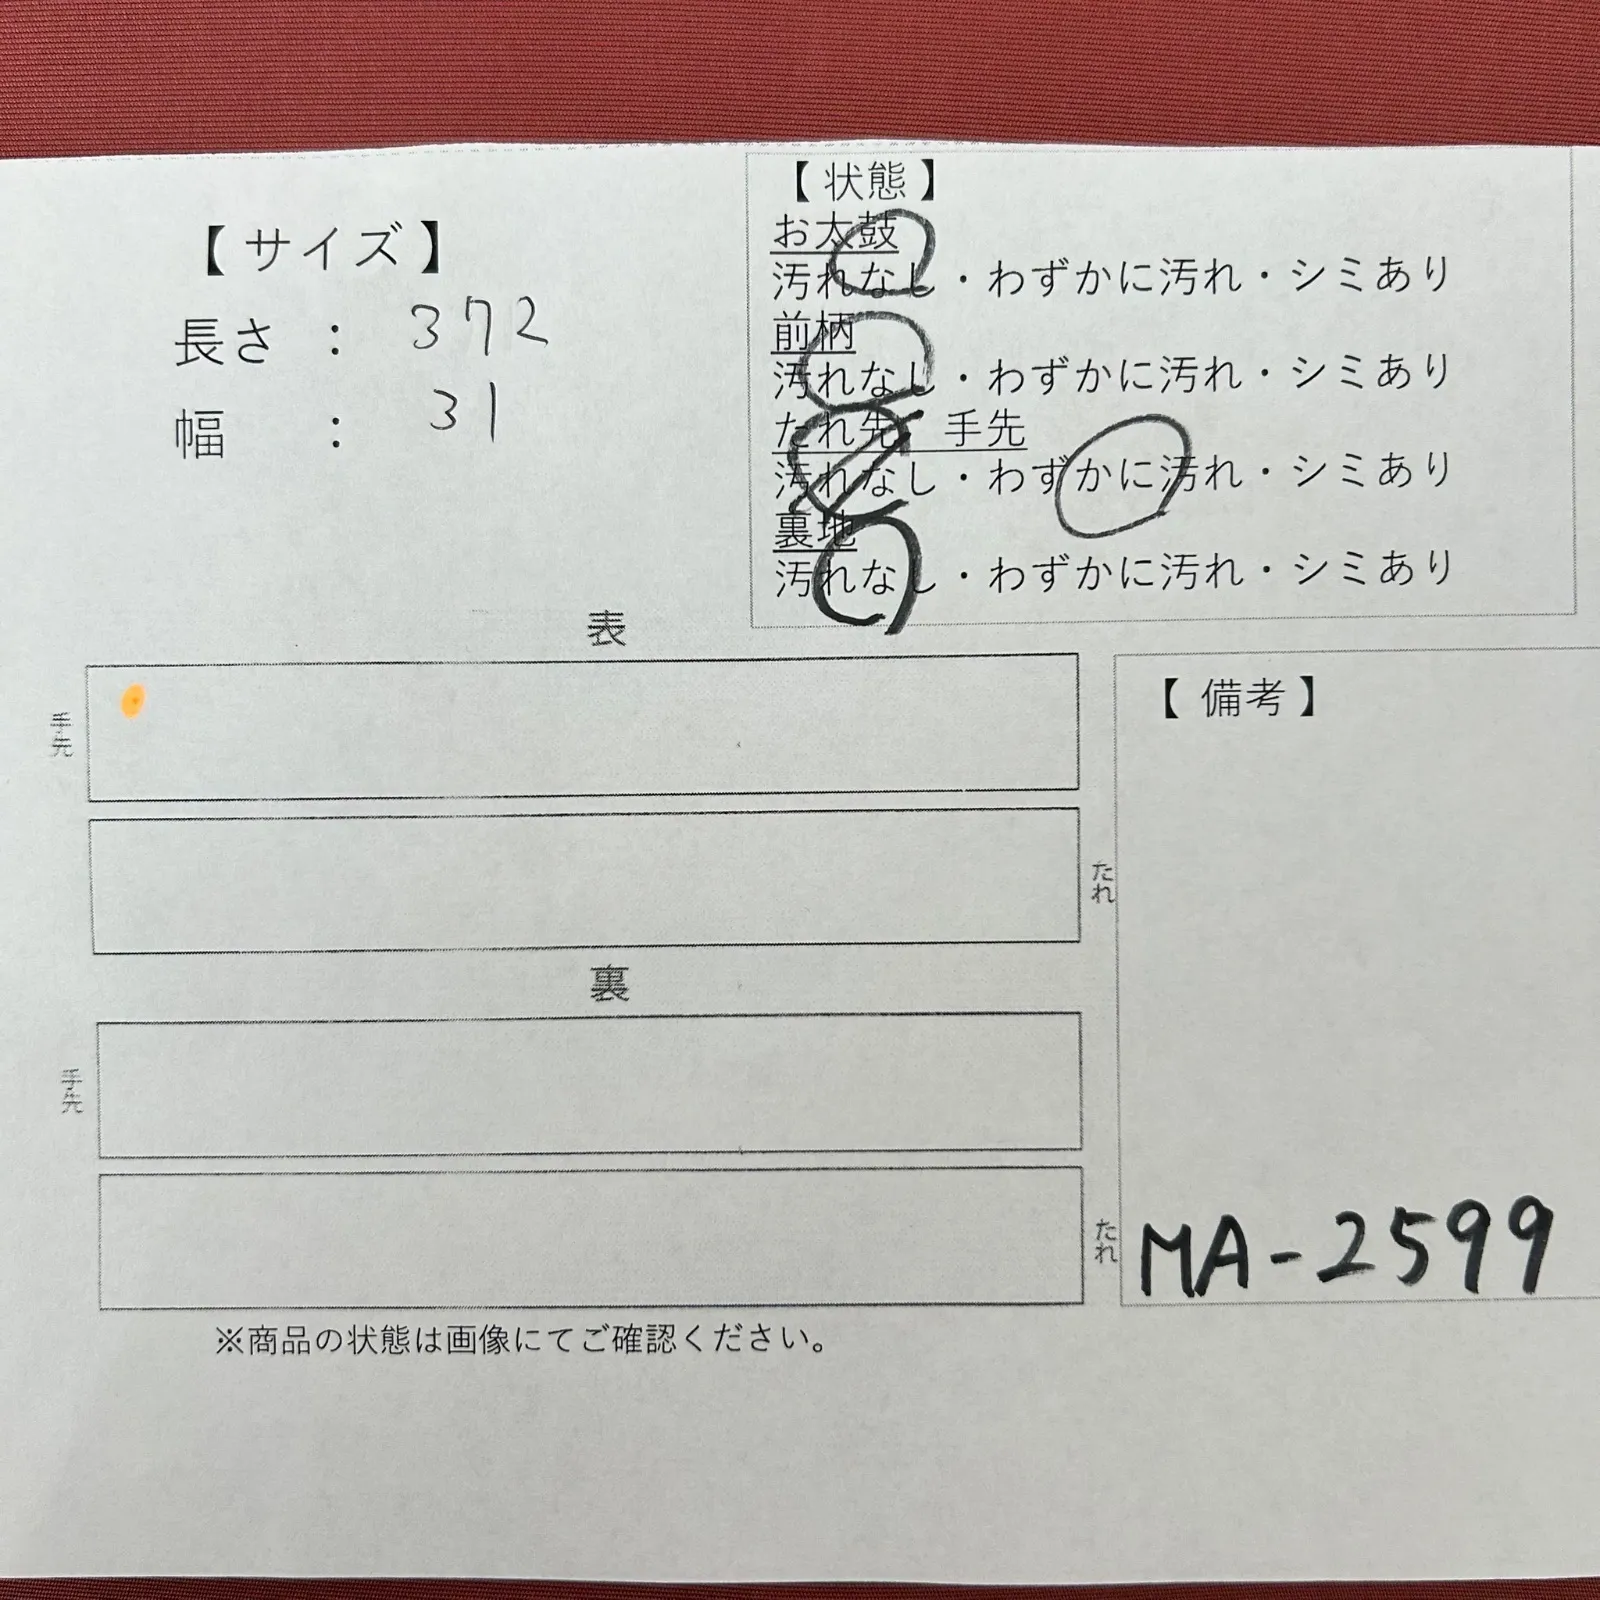 【サイズ】
長さ : 372
幅 : 31
【状態】
お太鼓
汚れなし・わずかに汚れ・シミあり
前柄
汚れなし・わずかに汚れ・シミあり
たれ先 手先
汚れなし・わずかに汚れ・シミあり
裏地
汚れなし・わずかに汚れ・シミあり
表
手先
たれ
裏
手先
たれ
【備考】
MA-2599
※商品の状態は画像にてご確認ください。